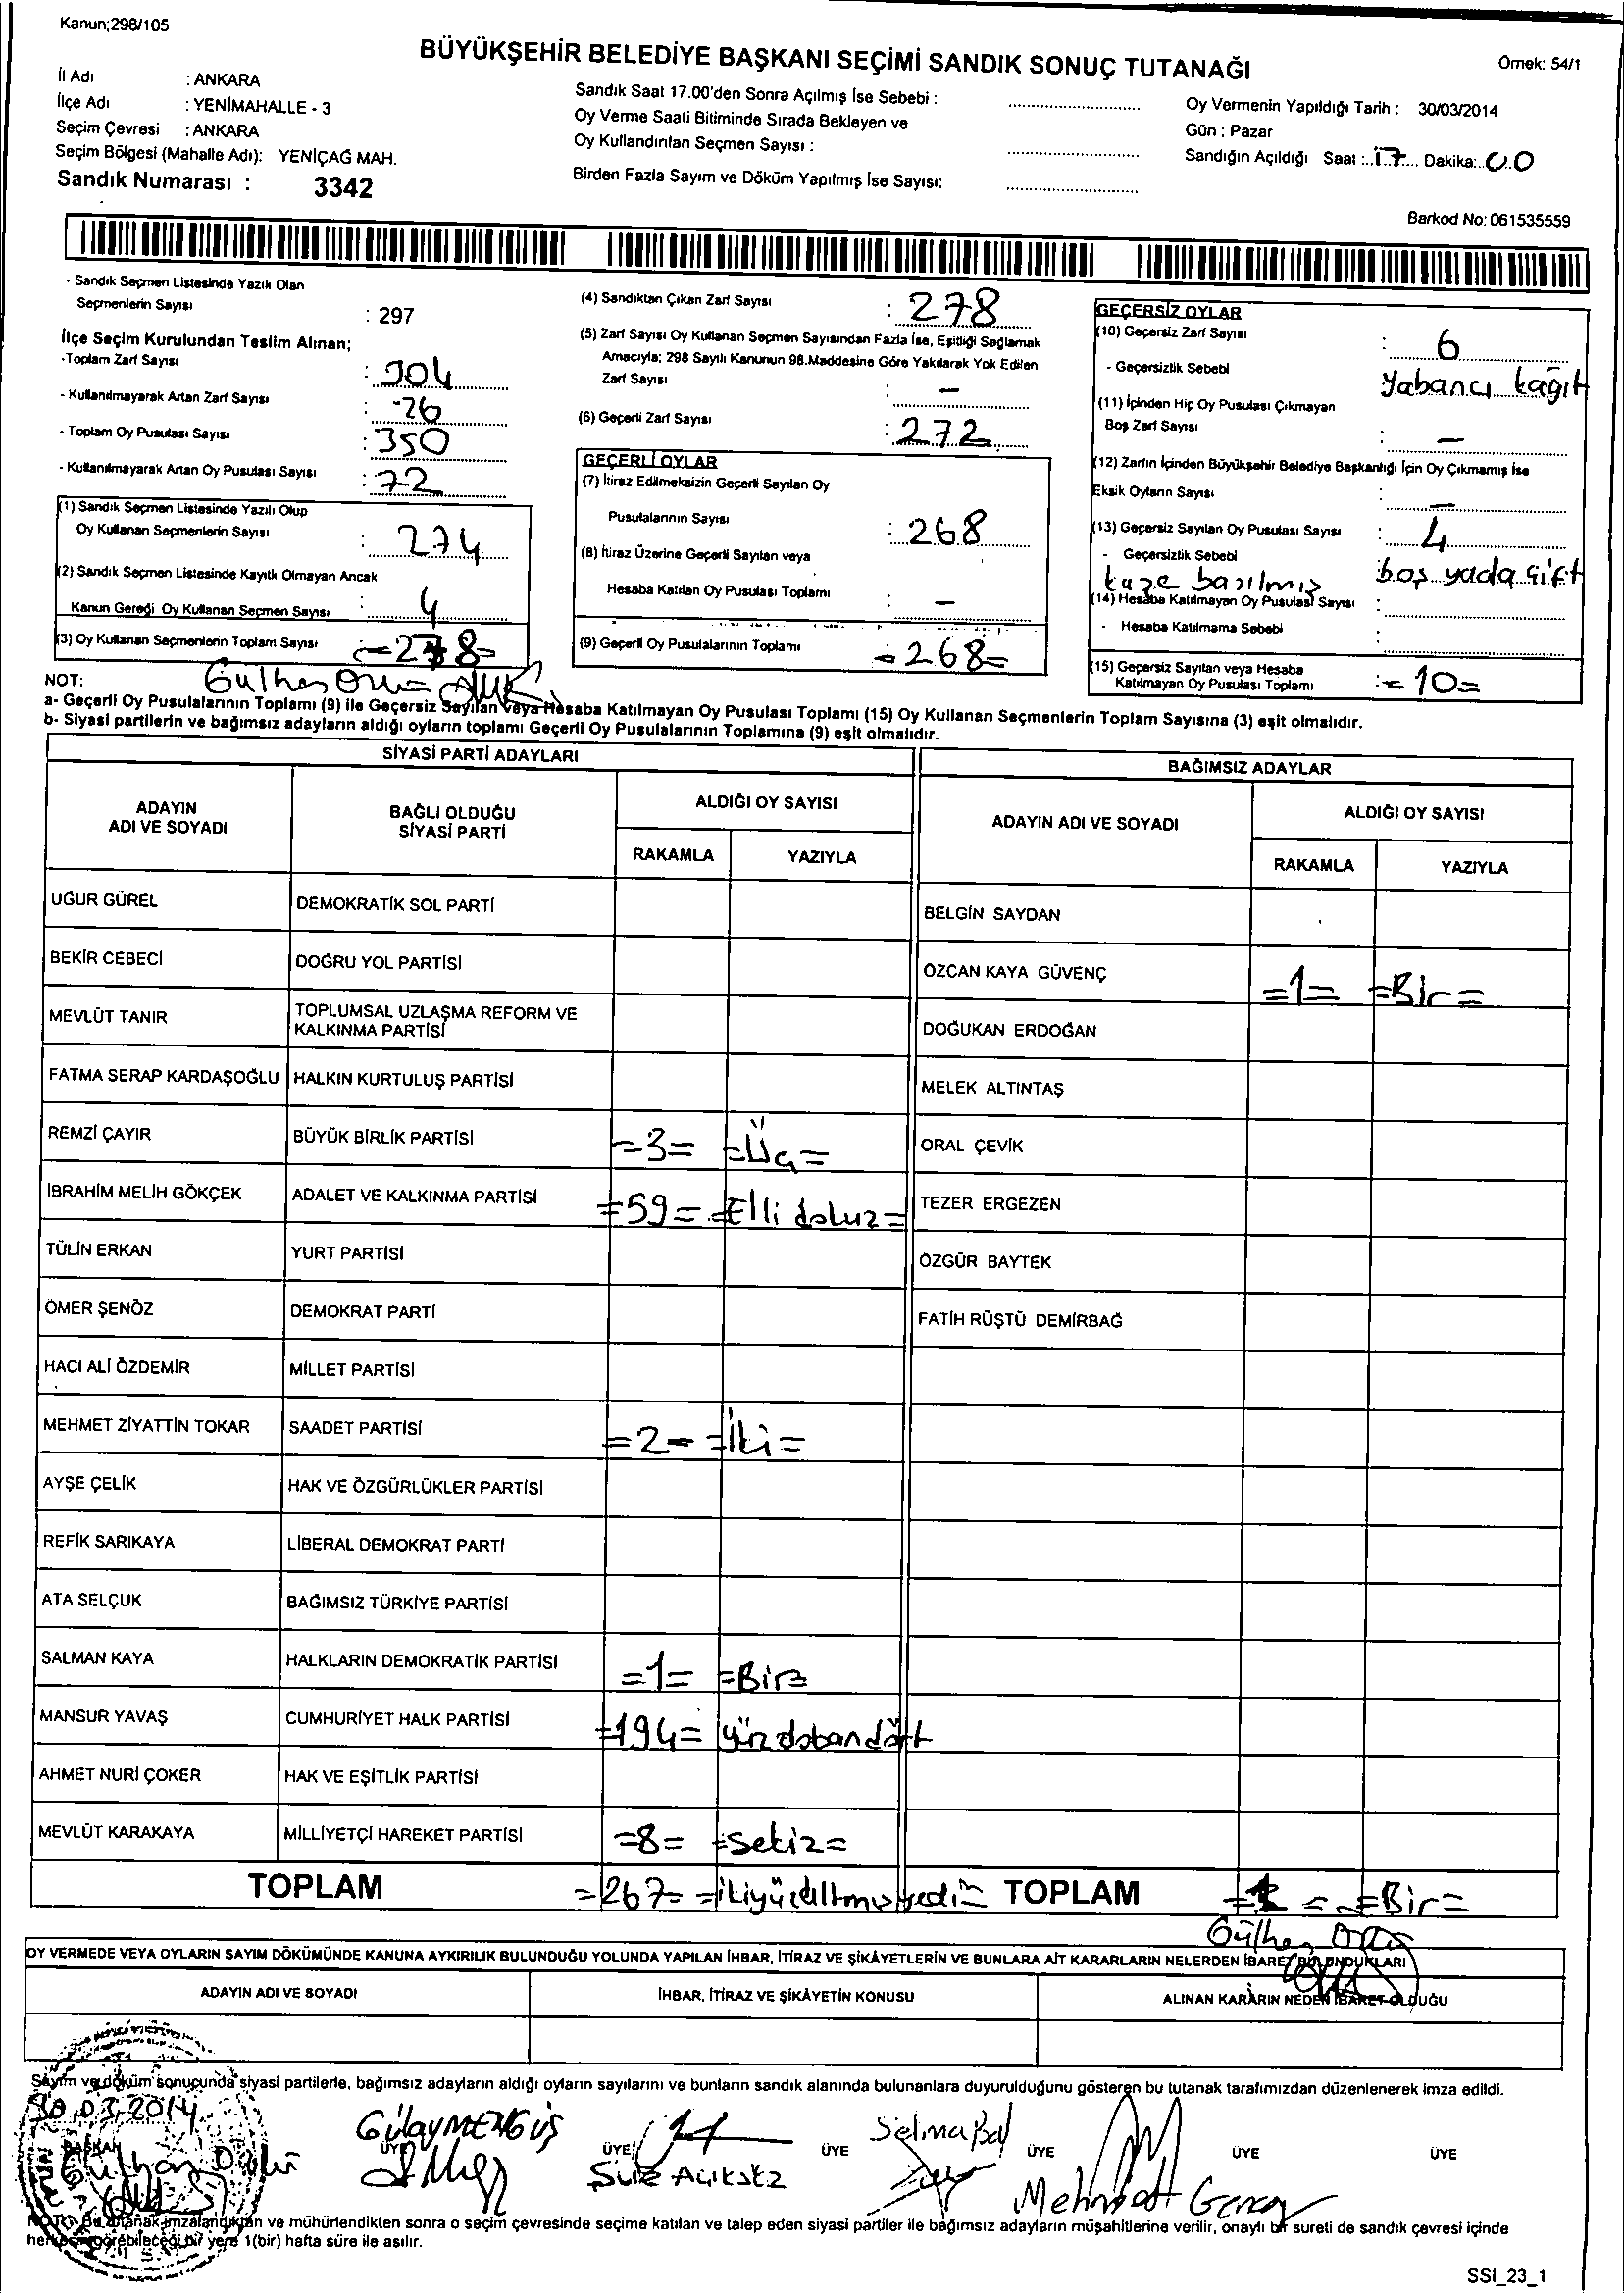 Kanun;298/105
BÜYÜKŞEHİR BELEDİYE BAŞKANI SEÇİMİ SANDIK SONUÇ TUTANAĞI
Örnek: 54/1
İl Adı : ANKARA
İlçe Adı : YENİMAHALLE - 3
Seçim Çevresi : ANKARA
Seçim Bölgesi (Mahalle Adı): YENİÇAĞ MAH.
Sandık Numarası : 3342
Sandık Saat 17.00'den Sonra Açılmış İse Sebebi :
Oy Verme Saati Bitiminde Sırada Bekleyen ve
Oy Kullandırılan Seçmen Sayısı :
Birden Fazla Sayım ve Döküm Yapılmış İse Sayısı:
Oy Vermenin Yapıldığı Tarih : 30/03/2014
Gün : Pazar
Sandığın Açıldığı Saat : 17 Dakika: 00
Barkod No: 061535559
- Sandık Seçmen Listesinde Yazılı Olan
Seçmenlerin Sayısı : 297
İlçe Seçim Kurulundan Teslim Alınan;
-Toplam Zarf Sayısı : 304
- Kullanılmayarak Artan Zarf Sayısı : 26
- Toplam Oy Pusulası Sayısı : 350
- Kullanılmayarak Artan Oy Pusulası Sayısı : 72
(1) Sandık Seçmen Listesinde Yazılı Olup
Oy Kullanan Seçmenlerin Sayısı : 274
(2) Sandık Seçmen Listesinde Kayıtlı Olmayan Ancak
Kanun Gereği Oy Kullanan Seçmen Sayısı : 4
(3) Oy Kullanan Seçmenlerin Toplam Sayısı =278=
(4) Sandıktan Çıkan Zarf Sayısı : 278
(5) Zarf Sayısı Oy Kullanan Seçmen Sayısından Fazla İse, Eşitliği Sağlamak
Amacıyla; 298 Sayılı Kanunun 98.Maddesine Göre Yakılarak Yok Edilen
Zarf Sayısı : -
(6) Geçerli Zarf Sayısı : 272
GEÇERLİ OYLAR
(7) İtiraz Edilmeksizin Geçerli Sayılan Oy
Pusulalarının Sayısı : 268
(8) İtiraz Üzerine Geçerli Sayılan veya
Hesaba Katılan Oy Pusulası Toplamı : -
(9) Geçerli Oy Pusulalarının Toplamı =268=
GEÇERSİZ OYLAR
(10) Geçersiz Zarf Sayısı : 6
- Geçersizlik Sebebi yabancı kağıt
(11) İçinden Hiç Oy Pusulası Çıkmayan
Boş Zarf Sayısı : -
(12) Zarfın İçinden Büyükşehir Belediye Başkanlığı İçin Oy Çıkmamış İse
Eksik Oyların Sayısı : -
(13) Geçersiz Sayılan Oy Pusulası Sayısı : 4
- Geçersizlik Sebebi boş yada çift
kaşe basılmış
(14) Hesaba Katılmayan Oy Pusulası Sayısı :
- Hesaba Katılmama Sebebi :
(15) Geçersiz Sayılan veya Hesaba
Katılmayan Oy Pusulası Toplamı : =10=
NOT:
a- Geçerli Oy Pusulalarının Toplamı (9) ile Geçersiz Sayılan veya Hesaba Katılmayan Oy Pusulası Toplamı (15) Oy Kullanan Seçmenlerin Toplam Sayısına (3) eşit olmalıdır.
b- Siyasi partilerin ve bağımsız adayların aldığı oyların toplamı Geçerli Oy Pusulalarının Toplamına (9) eşit olmalıdır.
SİYASİ PARTİ ADAYLARI
ADAYIN ADI VE SOYADI BAĞLI OLDUĞU SİYASİ PARTİ ALDIĞI OY SAYISI RAKAMLA YAZIYLA
UĞUR GÜREL DEMOKRATİK SOL PARTİ
BEKİR CEBECİ DOĞRU YOL PARTİSİ
MEVLÜT TANIR TOPLUMSAL UZLAŞMA REFORM VE KALKINMA PARTİSİ
FATMA SERAP KARDAŞOĞLU HALKIN KURTULUŞ PARTİSİ
REMZİ ÇAYIR BÜYÜK BİRLİK PARTİSİ =3= =Üç=
İBRAHİM MELİH GÖKÇEK ADALET VE KALKINMA PARTİSİ =59= =Elli dokuz=
TÜLİN ERKAN YURT PARTİSİ
ÖMER ŞENÖZ DEMOKRAT PARTİ
HACI ALİ ÖZDEMİR MİLLET PARTİSİ
MEHMET ZİYATTİN TOKAR SAADET PARTİSİ =2= =İki=
AYŞE ÇELİK HAK VE ÖZGÜRLÜKLER PARTİSİ
REFİK SARIKAYA LİBERAL DEMOKRAT PARTİ
ATA SELÇUK BAĞIMSIZ TÜRKİYE PARTİSİ
SALMAN KAYA HALKLARIN DEMOKRATİK PARTİSİ =1= =Bir=
MANSUR YAVAŞ CUMHURİYET HALK PARTİSİ =194= yüzdoksandört
AHMET NURİ ÇOKER HAK VE EŞİTLİK PARTİSİ
MEVLÜT KARAKAYA MİLLİYETÇİ HAREKET PARTİSİ =8= =Sekiz=
TOPLAM =267= =ikiyüzaltmışyedi=
BAĞIMSIZ ADAYLAR
ADAYIN ADI VE SOYADI ALDIĞI OY SAYISI RAKAMLA YAZIYLA
BELGİN SAYDAN
ÖZCAN KAYA GÜVENÇ =1= =Bir=
DOĞUKAN ERDOĞAN
MELEK ALTINTAŞ
ORAL ÇEVİK
TEZER ERGEZEN
ÖZGÜR BAYTEK
FATİH RÜŞTÜ DEMİRBAĞ
TOPLAM =1= =Bir=
OY VERMEDE VEYA OYLARIN SAYIM DÖKÜMÜNDE KANUNA AYKIRILIK BULUNDUĞU YOLUNDA YAPILAN İHBAR, İTİRAZ VE ŞİKÂYETLERİN VE BUNLARA AİT KARARLARIN NELERDEN İBARET BULUNDUKLARI
ADAYIN ADI VE SOYADI İHBAR, İTİRAZ VE ŞİKÂYETİN KONUSU ALINAN KARARIN NEDEN İBARET OLDUĞU
Sayım ve döküm sonucunda siyasi partilerle, bağımsız adayların aldığı oyların sayılarını ve bunların sandık alanında bulunanlara duyurulduğunu gösteren bu tutanak tarafımızdan düzenlenerek imza edildi.
30.03.2014
BAŞKAN ÜYE ÜYE ÜYE ÜYE ÜYE ÜYE
Selma Bal
NOT: Bu tutanak imzalandıktan ve mühürlendikten sonra o seçim çevresinde seçime katılan ve talep eden siyasi partiler ile bağımsız adayların müşahitlerine verilir, onaylı bir sureti de sandık çevresi içinde
herkesin görebileceği bir yere 1(bir) hafta süre ile asılır.
SSI_23_1